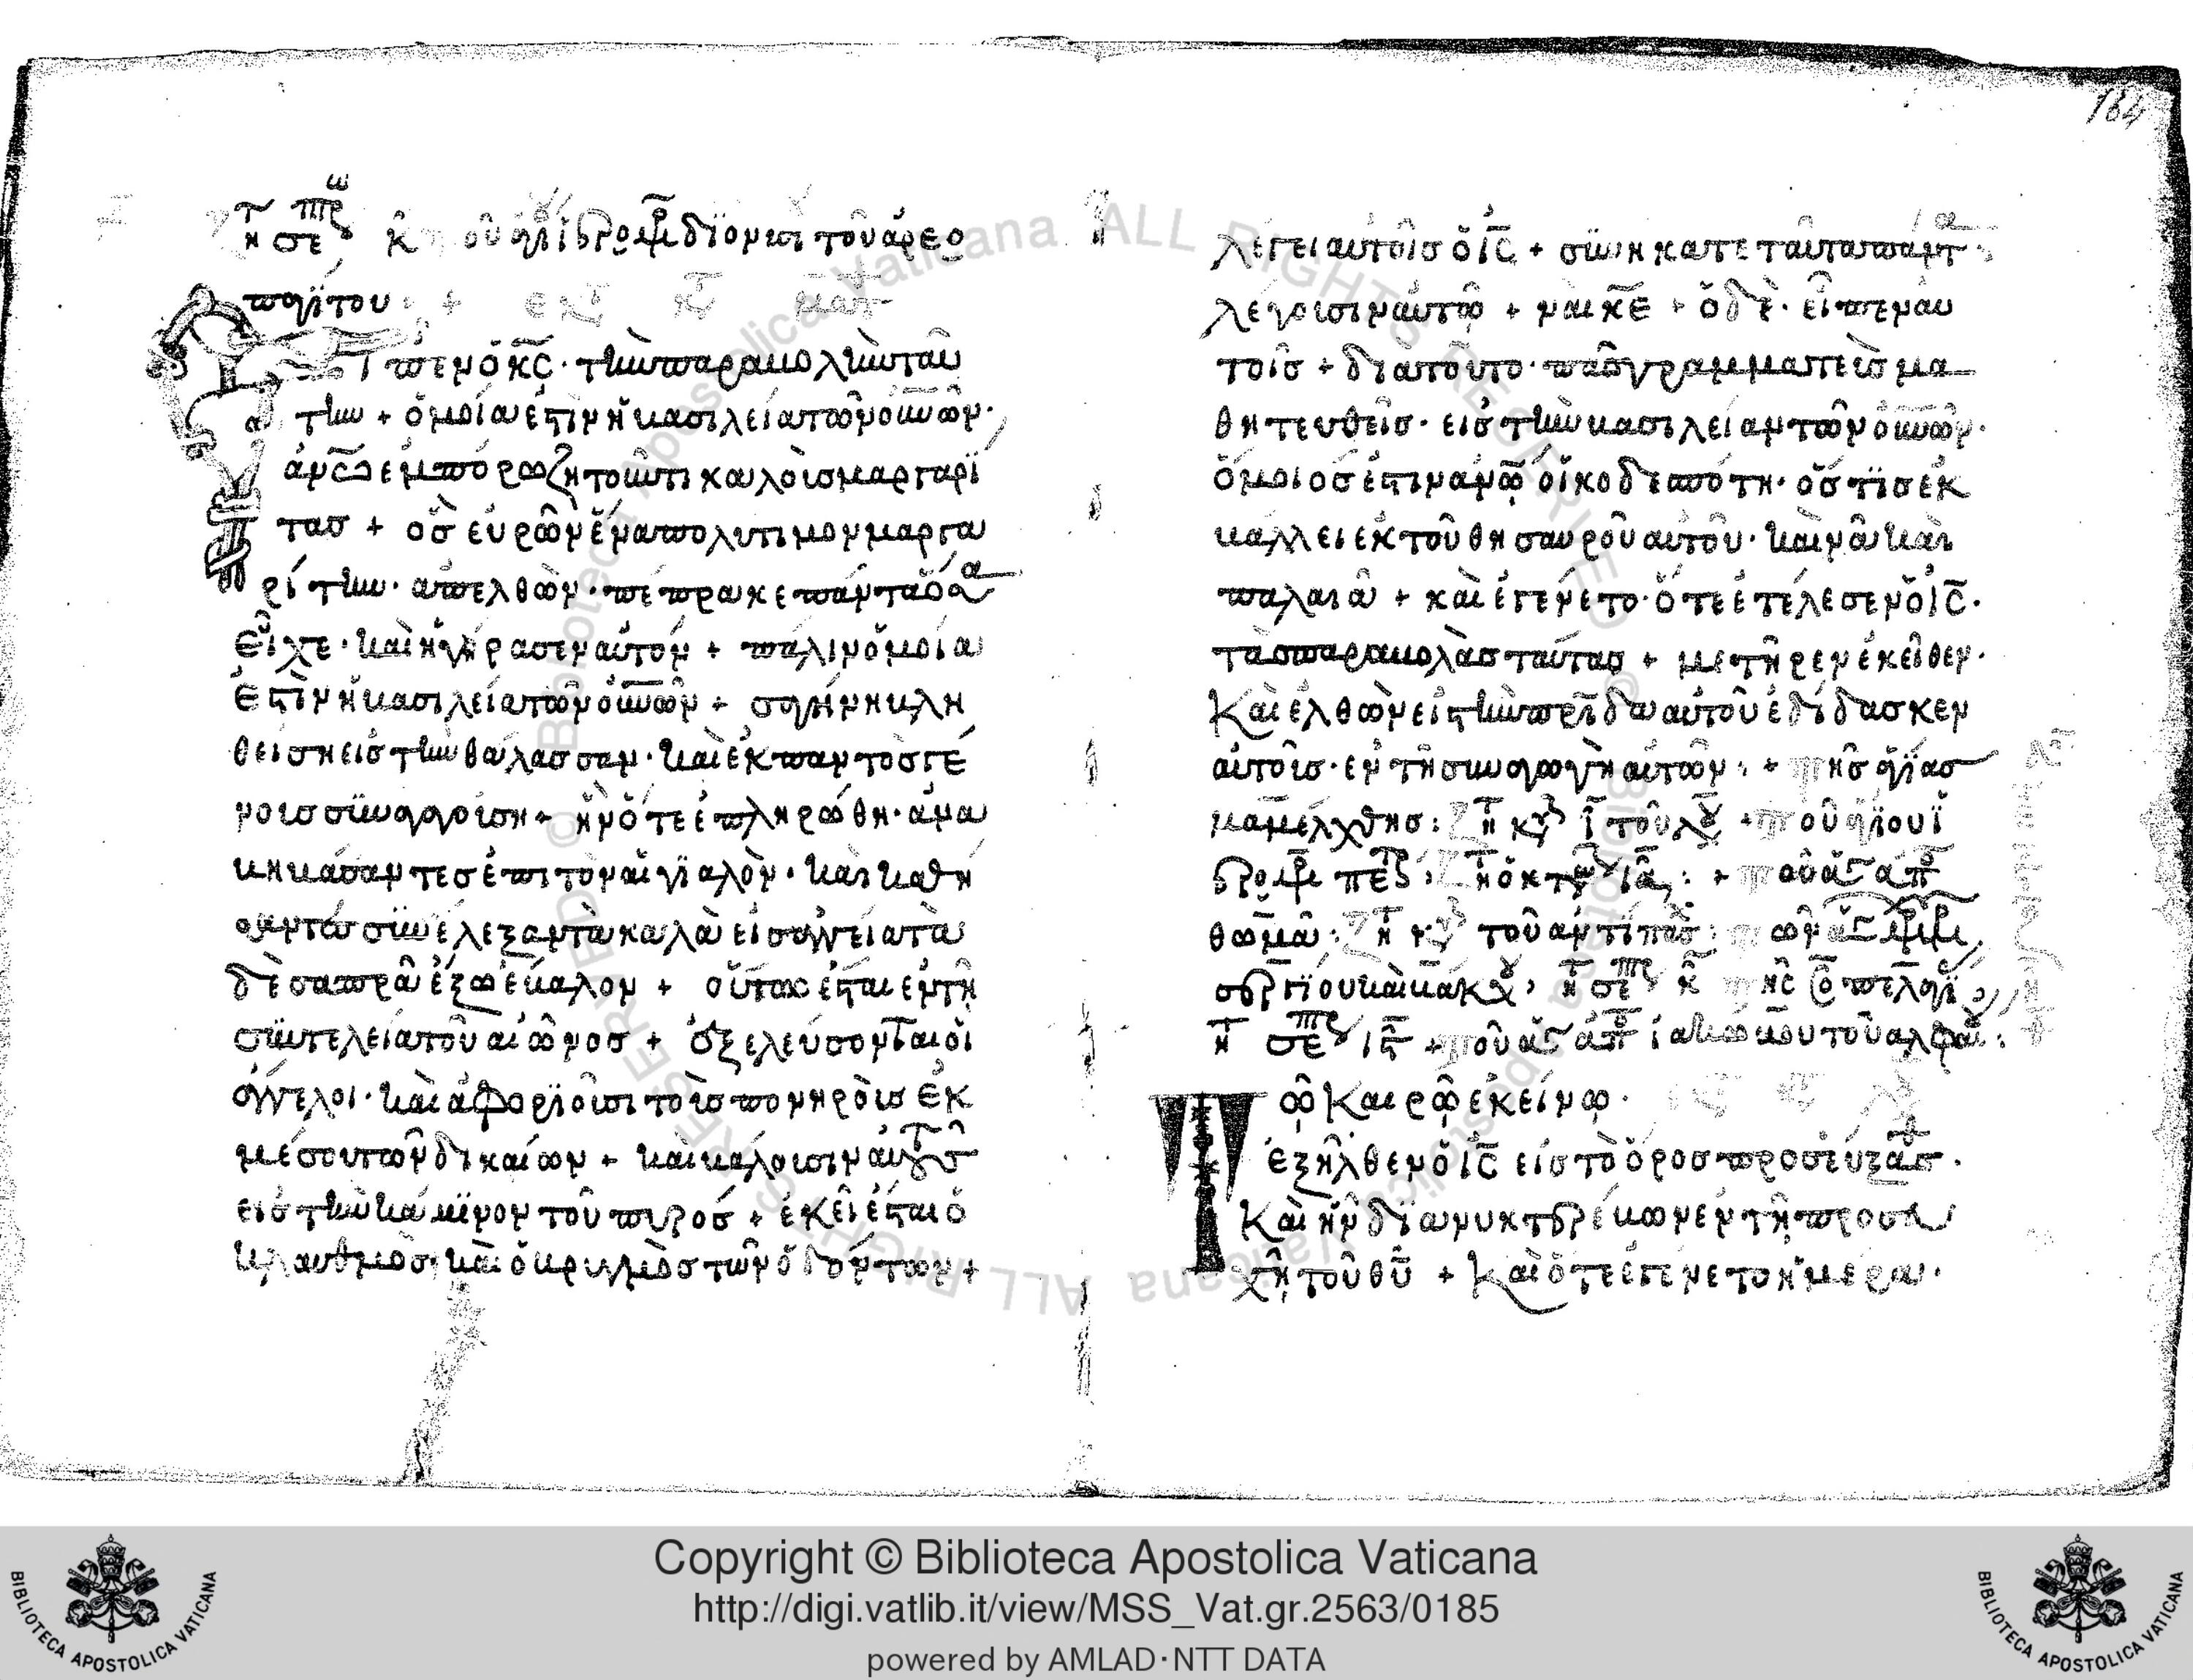 τη σεπτεβρ κ του ἁγι ἱερομρ διονυσι τοῦ ἀρεο
παγΐτου
Εἶπεν ὁ κς· την παραβολην ταύ
την + ὁμοία ἐστιν ἡ βασιλεία τῶν οὐνῶν·
ἀνω ἐμπόρω ζητοῦντι καλοὺς μαργαρΐ
τας + ὃς εὑρὼν ἕνα πολυτιμον μαργα
ρίτην· ἀπελθὼν· πέπρακε πάντα ὅσα
εἶχε· καὶ ἠγόρασεν αὐτόν + πάλιν ὁμοία
ἐστὶν ἡ βασιλεία τῶν οὐνῶν + σαγήνη βλη
θείση εἰς την θάλασσαν· καὶ ἐκ παντὸς γέ
νους συναγαγούση + ἣν ὅτε ἐπληρώθη· ἀνα
βηβάσαντες ἐπι τὸν αἰγϊαλὸν· καὶ καθή
σαντες συνέλεξαν τὰ καλὰ εἰς ἀγγεία τὰ
δὲ σαπρὰ ἔξω ἔβαλον + οὕτως ἔσται ἐν τῆ
συντελεία τοῦ αἰῶνος + ἐξελεύσονται οἱ
ἄγγελοι· καὶ ἀφορϊοῦσι τοὺς πονηροὺς ἐκ
μέσου τῶν δικαίων + καὶ βαλοῦσιν αὐτοὺς
εἰς την κάμϊνον τοῦ πυρος + ἐκεῖ ἔσται ὁ
κλαυθμὸς καὶ ὁ βρυγμὸς τῶν ὀδόντων +
164
λέγει αὐτοῖς ὁ ις + συνήκατε ταῦτα πάντα
λέγουσιν αὐτῶ + ναι κε + ὁ δὲ· εἶπεν αυ
τοῖς + διὰ τοῦτο· πᾶς γραμματεὺς μα
θητευθεὶς· εἰς την βασιλείαν τῶν οὐνῶν·
ὅμοιος ἐστιν ανω οἰκοδεσπότη· ὅστϊς ἐκ
βάλλει ἐκ τοῦ θησαυροῦ αὐτοῦ· καὶνὰ καὶ
παλαιὰ + καὶ ἐγένετο· ὅτε ἐτέλεσεν ὁ ις·
τὰς παραβολὰς ταύτας + μετῆρεν ἐκεῖθεν·
Καὶ ἐλθὼν εἰς την πατρϊδα αὐτοῦ ἐδίδασκεν
αὐτοὺς· ἐν τῆ συναγωγὴ αὐτῶν: + της ἁγΐας
Τῶ Καιρῶ ἐκείνω·
ἐξῆλθεν ὁ ις εἰς τὸ ὄρος προσεύξασθαι·
Καὶ ἦν δϊανυκτερεύων ἐν τῆ προσευ
χῆ τοῦ θῦ + Καὶ ὅτε ἐγένετο ἡμέρα·
Copyright © Biblioteca Apostolica Vaticana
http://digi.vatlib.it/view/MSS_Vat.gr.2563/0185
powered by AMLAD·NTT DATA
BIBLIOTECA APOSTOLICA VATICANA
BIBLIOTECA APOSTOLICA VATICANA